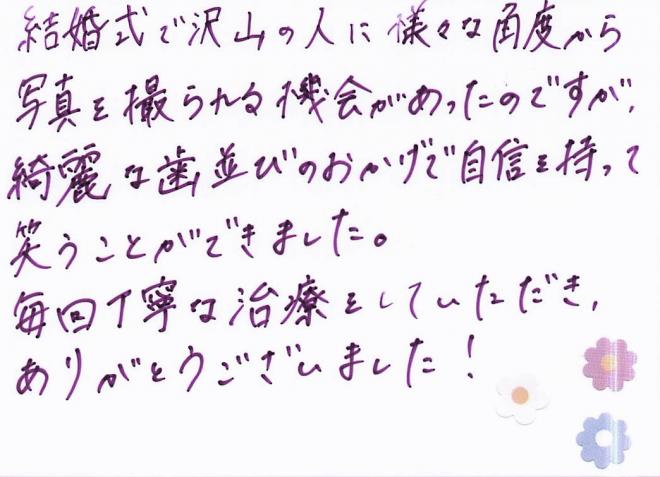 結婚式で沢山の人に様々な角度から
写真を撮られる機会があったのですが、
綺麗な歯並びのおかげで自信を持って
笑うことができました。
毎回丁寧な治療をしていただき、
ありがとうございました！